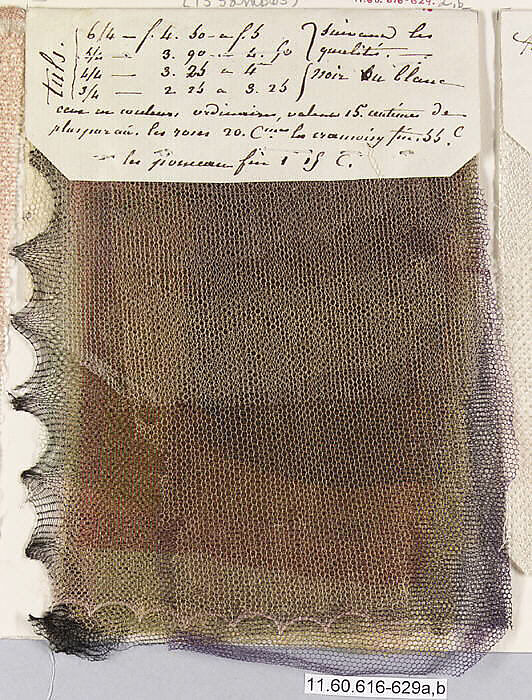 (13 Samples)
11.60.616-629a,b
tuls.
6/4 — f. 4. 50 a f 5 Suivant les
5/4 — 3. 90 a 4. 50 qualités. —
4/4 — 3. 25 a 4 noir ou blanc
3/4 — 2. 25 a 3. 25
ceux en couleurs ordinaires, valent 15. centimes de
plus par au. les roses 20. C.mes les cramoisy fin. 55. C
les ponceau fin 1 15 C.
11.60.616-629a,b